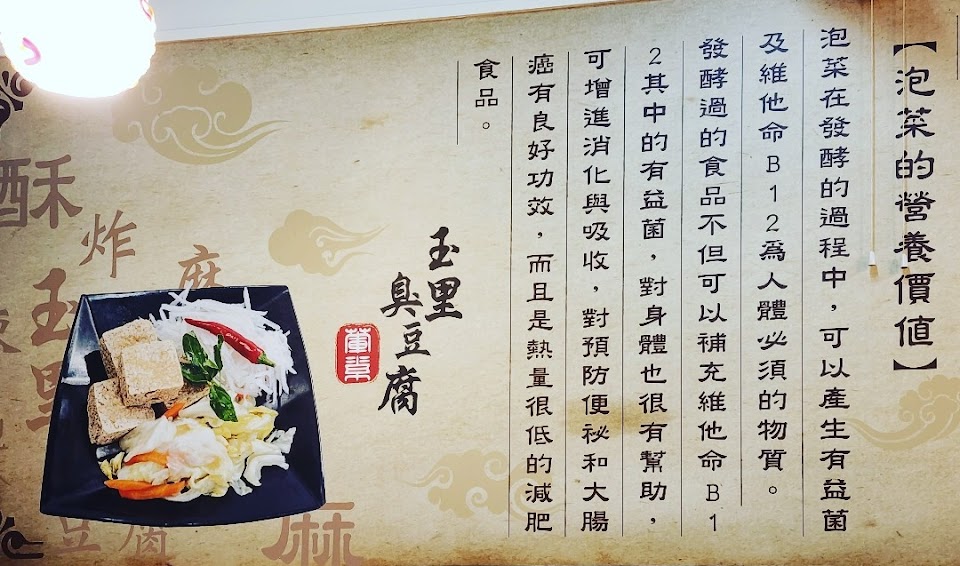 【泡菜的營養價值】
泡菜在發酵的過程中，可以產生有益菌
及維他命B12為人體必須的物質。
發酵過的食品不但可以補充維他命B1
2其中的有益菌，對身體也很有幫助，
可增進消化與吸收，對預防便祕和大腸
癌有良好功效，而且是熱量很低的減肥
食品。
玉里
臭豆腐
麻
炸
酥
玉里
豆腐
麻